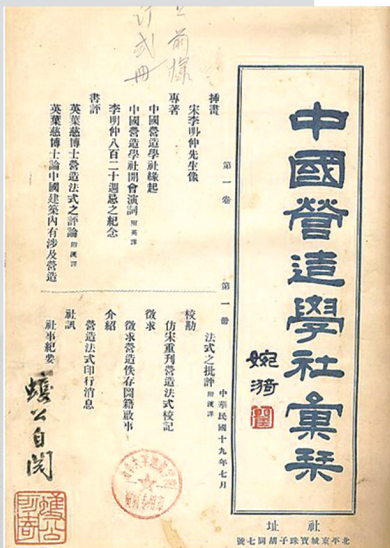 中國營造學社彙栞
社址
北平東城寶珠子胡同七號
中華民國十九年七月
第一卷
第一册
插畫
宋李明仲先生像
專著
中國營造學社緣起
中國營造學社開會演詞 附英譯
李明仲八百二十週忌之紀念
書評
英葉慈博士營造法式之評論 附漢譯
英葉慈博士論中國建築內有涉及營造
法式之批評 附漢譯
校勘
仿宋重刊營造法式校記
徵求
徵求營造佚存圖籍啟事
介紹
營造法式印行消息
社訊
社事紀要
自閱